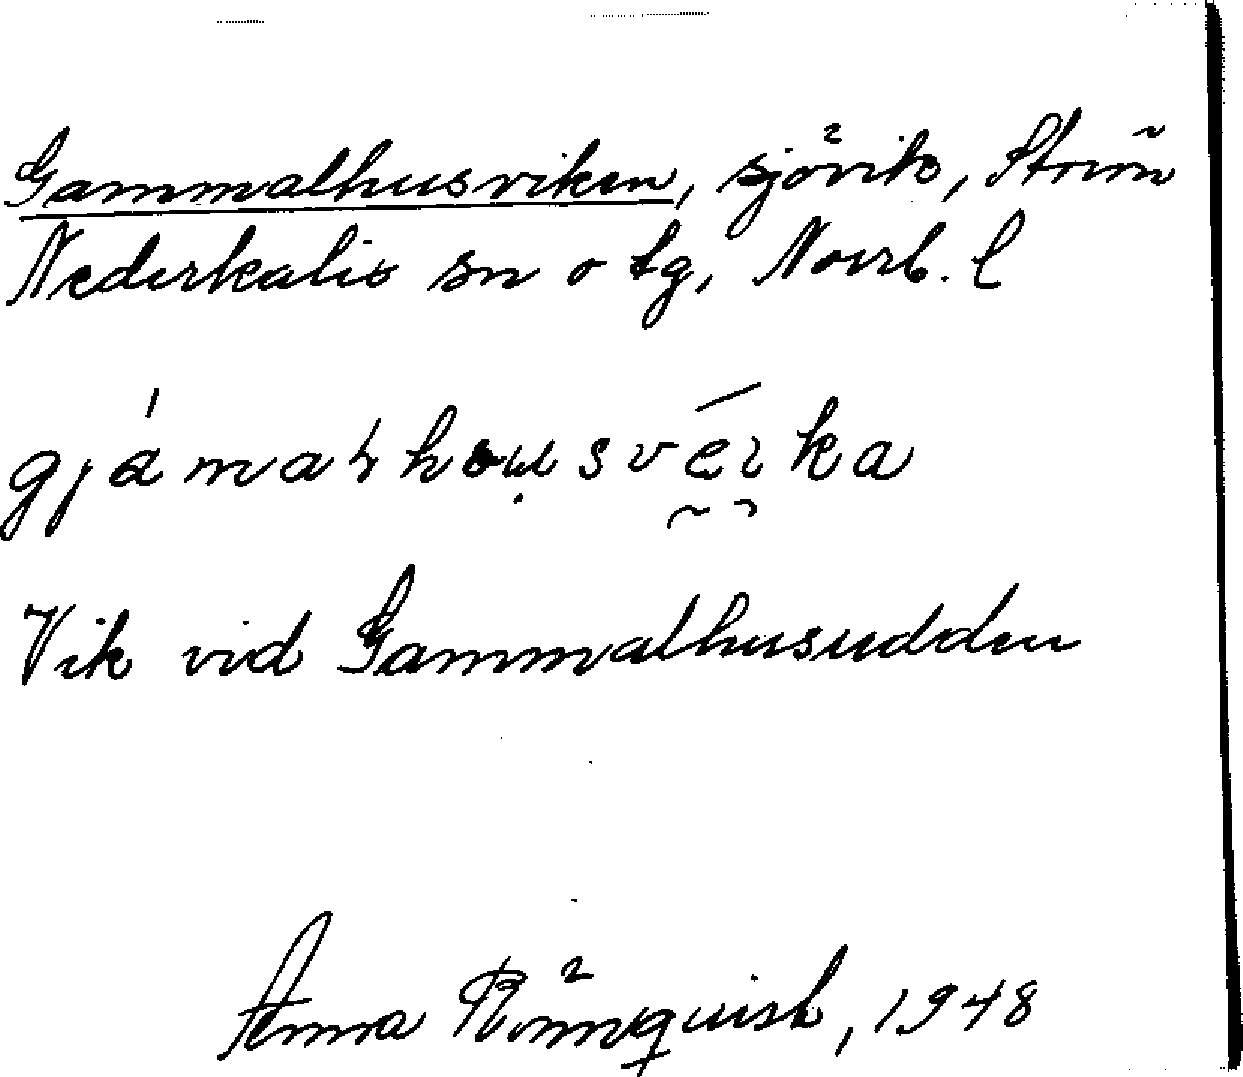 Gammalhusviken, sjövik, Ström
Nederkalix sn o tg, Norrb. l
gjámaɫhou̩svéika
Vik vid Gammalhusudden
Anna Rönnquist, 1948